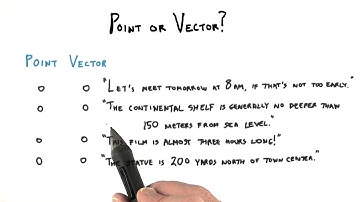 Point or Vector?
Point Vector
o o "Let's meet tomorrow at 8am, if that's not too early."
o o "The continental shelf is generally no deeper than
150 meters from sea level."
o o "This film is almost three hours long!"
o o "The statue is 200 yards north of town center."